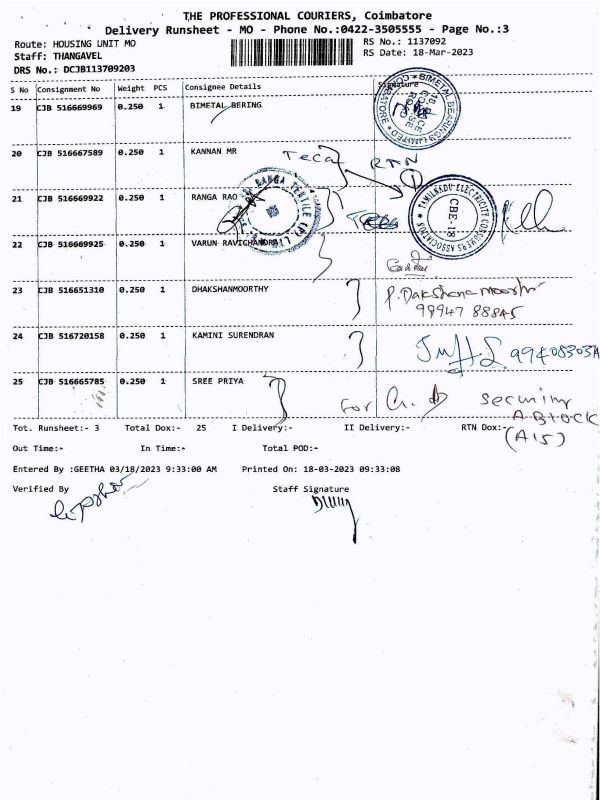 THE PROFESSIONAL COURIERS, Coimbatore
Delivery Runsheet - MO - Phone No.:0422-3505555 - Page No.:3
Route: HOUSING UNIT MO RS No.: 1137092
Staff: THANGAVEL RS Date: 18-Mar-2023
DRS No.: DCJB113709203
S No Consignment No Weight PCS Consignee Details Signature
19 CJB 516669969 0.250 1 BIMETAL BERING
BIMETAL BEARINGS LIMITED
20 CJB 516667589 0.250 1 KANNAN MR
RTN
21 CJB 516669922 0.250 1 RANGA RAO
RANGA TEXTILE
TAMILNADU ELECTRICITY CONSUMERS ASSOCIATION
CBE-18
22 CJB 516669925 0.250 1 VARUN RAVICHANDRA
23 CJB 516651310 0.250 1 DHAKSHANMOORTHY
P. Dakshana moorthi
99947 88845
24 CJB 516720158 0.250 1 KAMINI SURENDRAN
25 CJB 516665785 0.250 1 SREE PRIYA
for
A Block
(A15)
Tot. Runsheet:- 3 Total Dox:- 25 I Delivery:- II Delivery:- RTN Dox:-
Out Time:- In Time:- Total POD:-
Entered By :GEETHA 03/18/2023 9:33:00 AM Printed On: 18-03-2023 09:33:08
Verified By Staff Signature